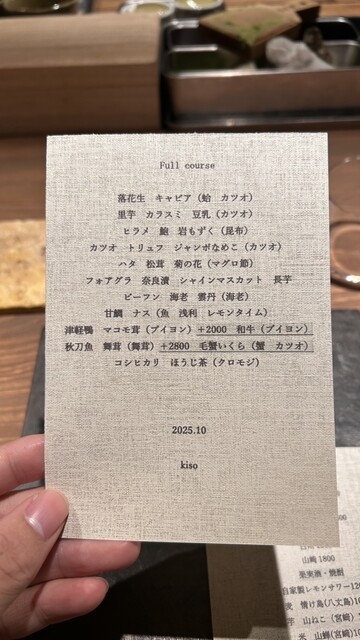 Full course
落花生 キャビア（蛤 カツオ）
里芋 カラスミ 豆乳（カツオ）
ヒラメ 鮑 岩もずく（昆布）
カツオ トリュフ ジャンボなめこ（カツオ）
ハタ 松茸 菊の花（マグロ節）
フォアグラ 奈良漬 シャインマスカット 長芋
ビーフン 海老 雲丹（海老）
甘鯛 ナス（魚 浅利 レモンタイム）
津軽鴨 マコモ茸（ブイヨン）+2000 和牛（ブイヨン）
秋刀魚 舞茸（舞茸）+2800 毛蟹いくら（蟹 カツオ）
コシヒカリ ほうじ茶（クロモジ）
2025.10
kiso
山崎 1800
果実酒・焼酎
自家製レモンサワー
麦 情け島(八丈島)
芋 山ねこ(宮崎)
米